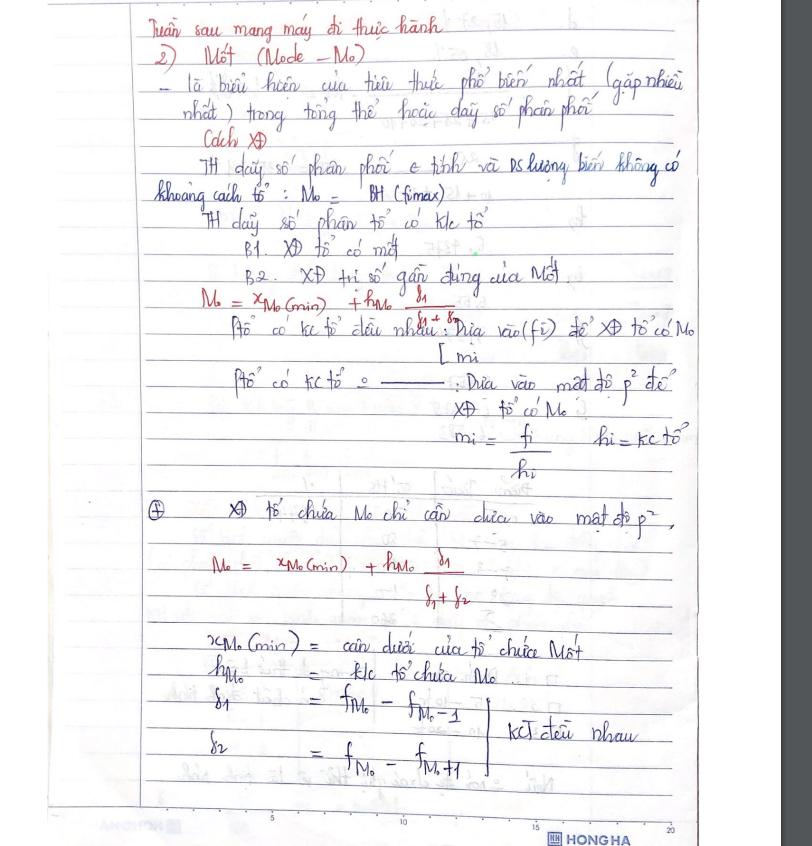 Tuần sau mang máy đi thực hành
2) Mốt (Mode - Mo)
- là biểu hiện của tiêu thức phổ biến nhất (gặp nhiều
nhất) trong tổng thể hoặc dãy số phân phối
Cách XĐ
TH dãy số phân phối ∈ tính và DS lượng biến không có
khoảng cách tổ : Mo = BH (fimax)
TH dãy số phân tổ có k/c tổ
B1. XĐ tổ có mốt
B2. XĐ trị số gần đúng của Mốt.
Mo = xMo(min) + hMo δ1 / (δ1 + δ2)
Ptổ có kc tổ đều nhau : Dựa vào (fi) để XĐ tổ có Mo
[ mi
Ptổ có kc tổ 0 ——— : Dựa vào mật độ p² để
XĐ tổ có Mo
mi = fi / hi hi = kc tổ
⊕ XĐ tổ chứa Mo chỉ cần dựa vào mật độ p²,
Mo = xMo(min) + hMo δ1 / (δ1 + δ2)
xMo(min) = cận dưới của tổ chứa Mốt
hMo = k/c tổ chứa Mo
δ1 = fMo - fMo-1
KCT đều nhau
δ2 = fMo - fMo+1
5 10 15 20
HH HONG HA